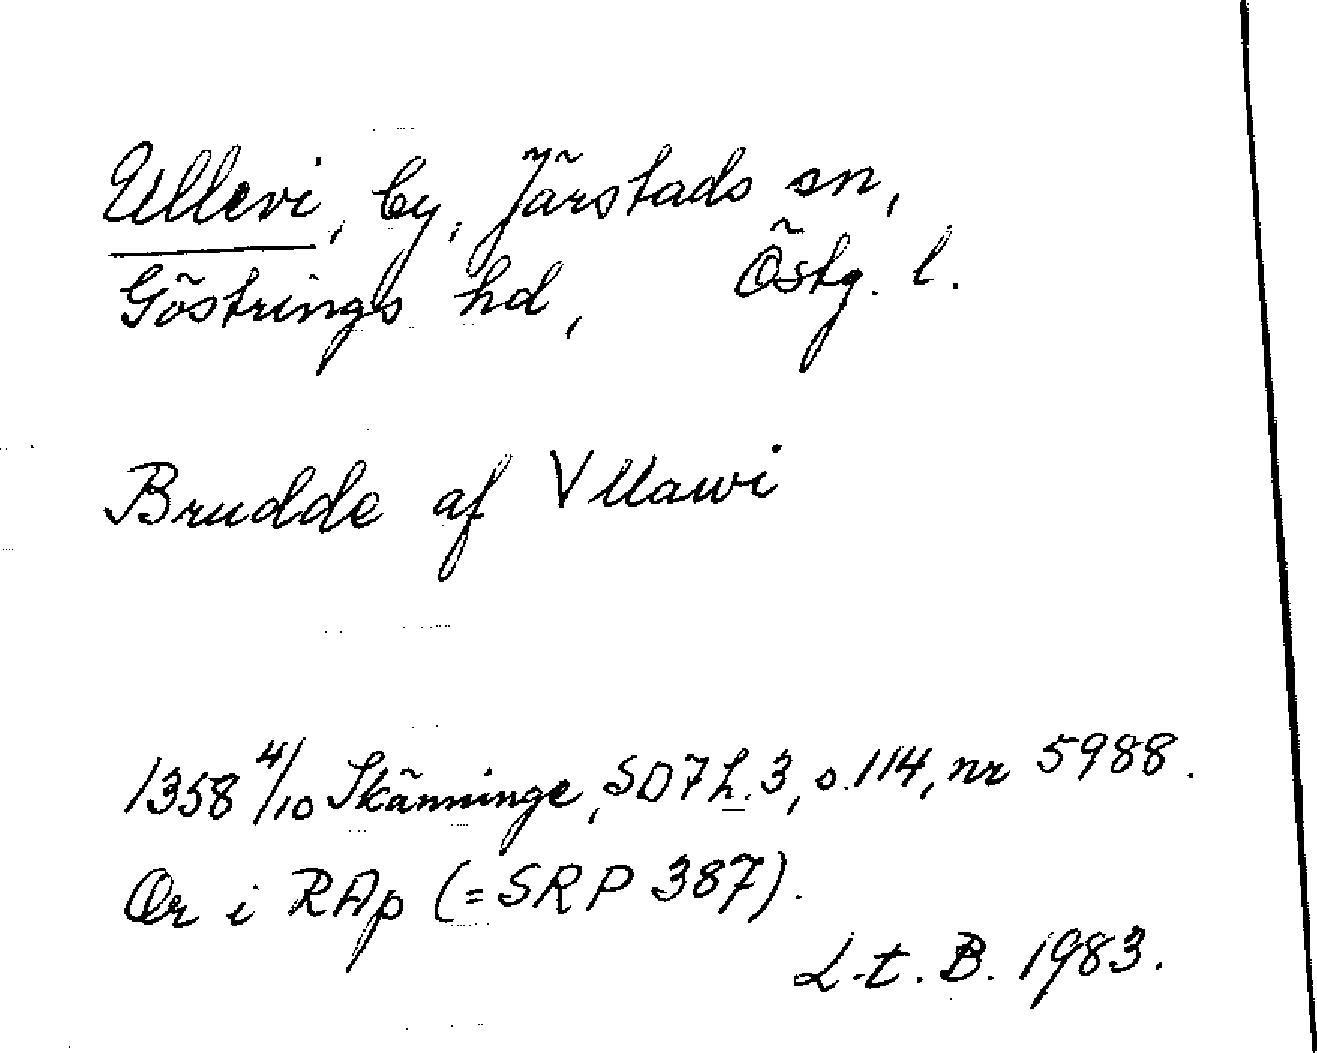 Ullevi, by, Järstads sn,
Göstrings hd, Östg. l.
Brudde af Vllawi
1358 4/10 Skänninge, SD7 h. 3, s. 114, nr 5988.
Or i RAp (=SRP 387).
L-t. B. 1983.